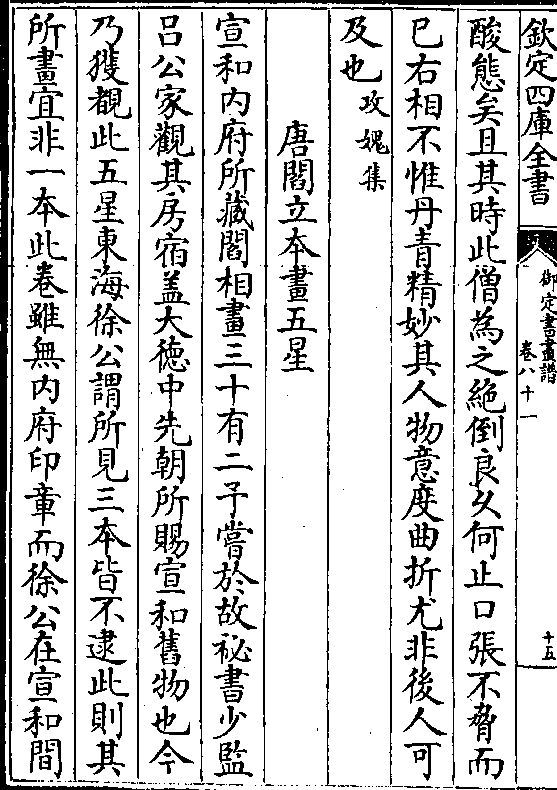 欽定四庫全書
御定書畫譜
卷八十一
十五
酸態矣且其時此僧為之絶倒良乆何止口張不脅而
已右相不惟丹青精妙其人物意度曲折尤非後人可
及也攻媿集
唐閻立本畫五星
宣和内府所藏閻相畫三十有二予嘗於故祕書少監
吕公家觀其房宿盖大徳中先朝所賜宣和舊物也今
乃獲覩此五星東海徐公謂所見三本皆不逮此則其
所畫宜非一本此卷雖無内府印章而徐公在宣和間